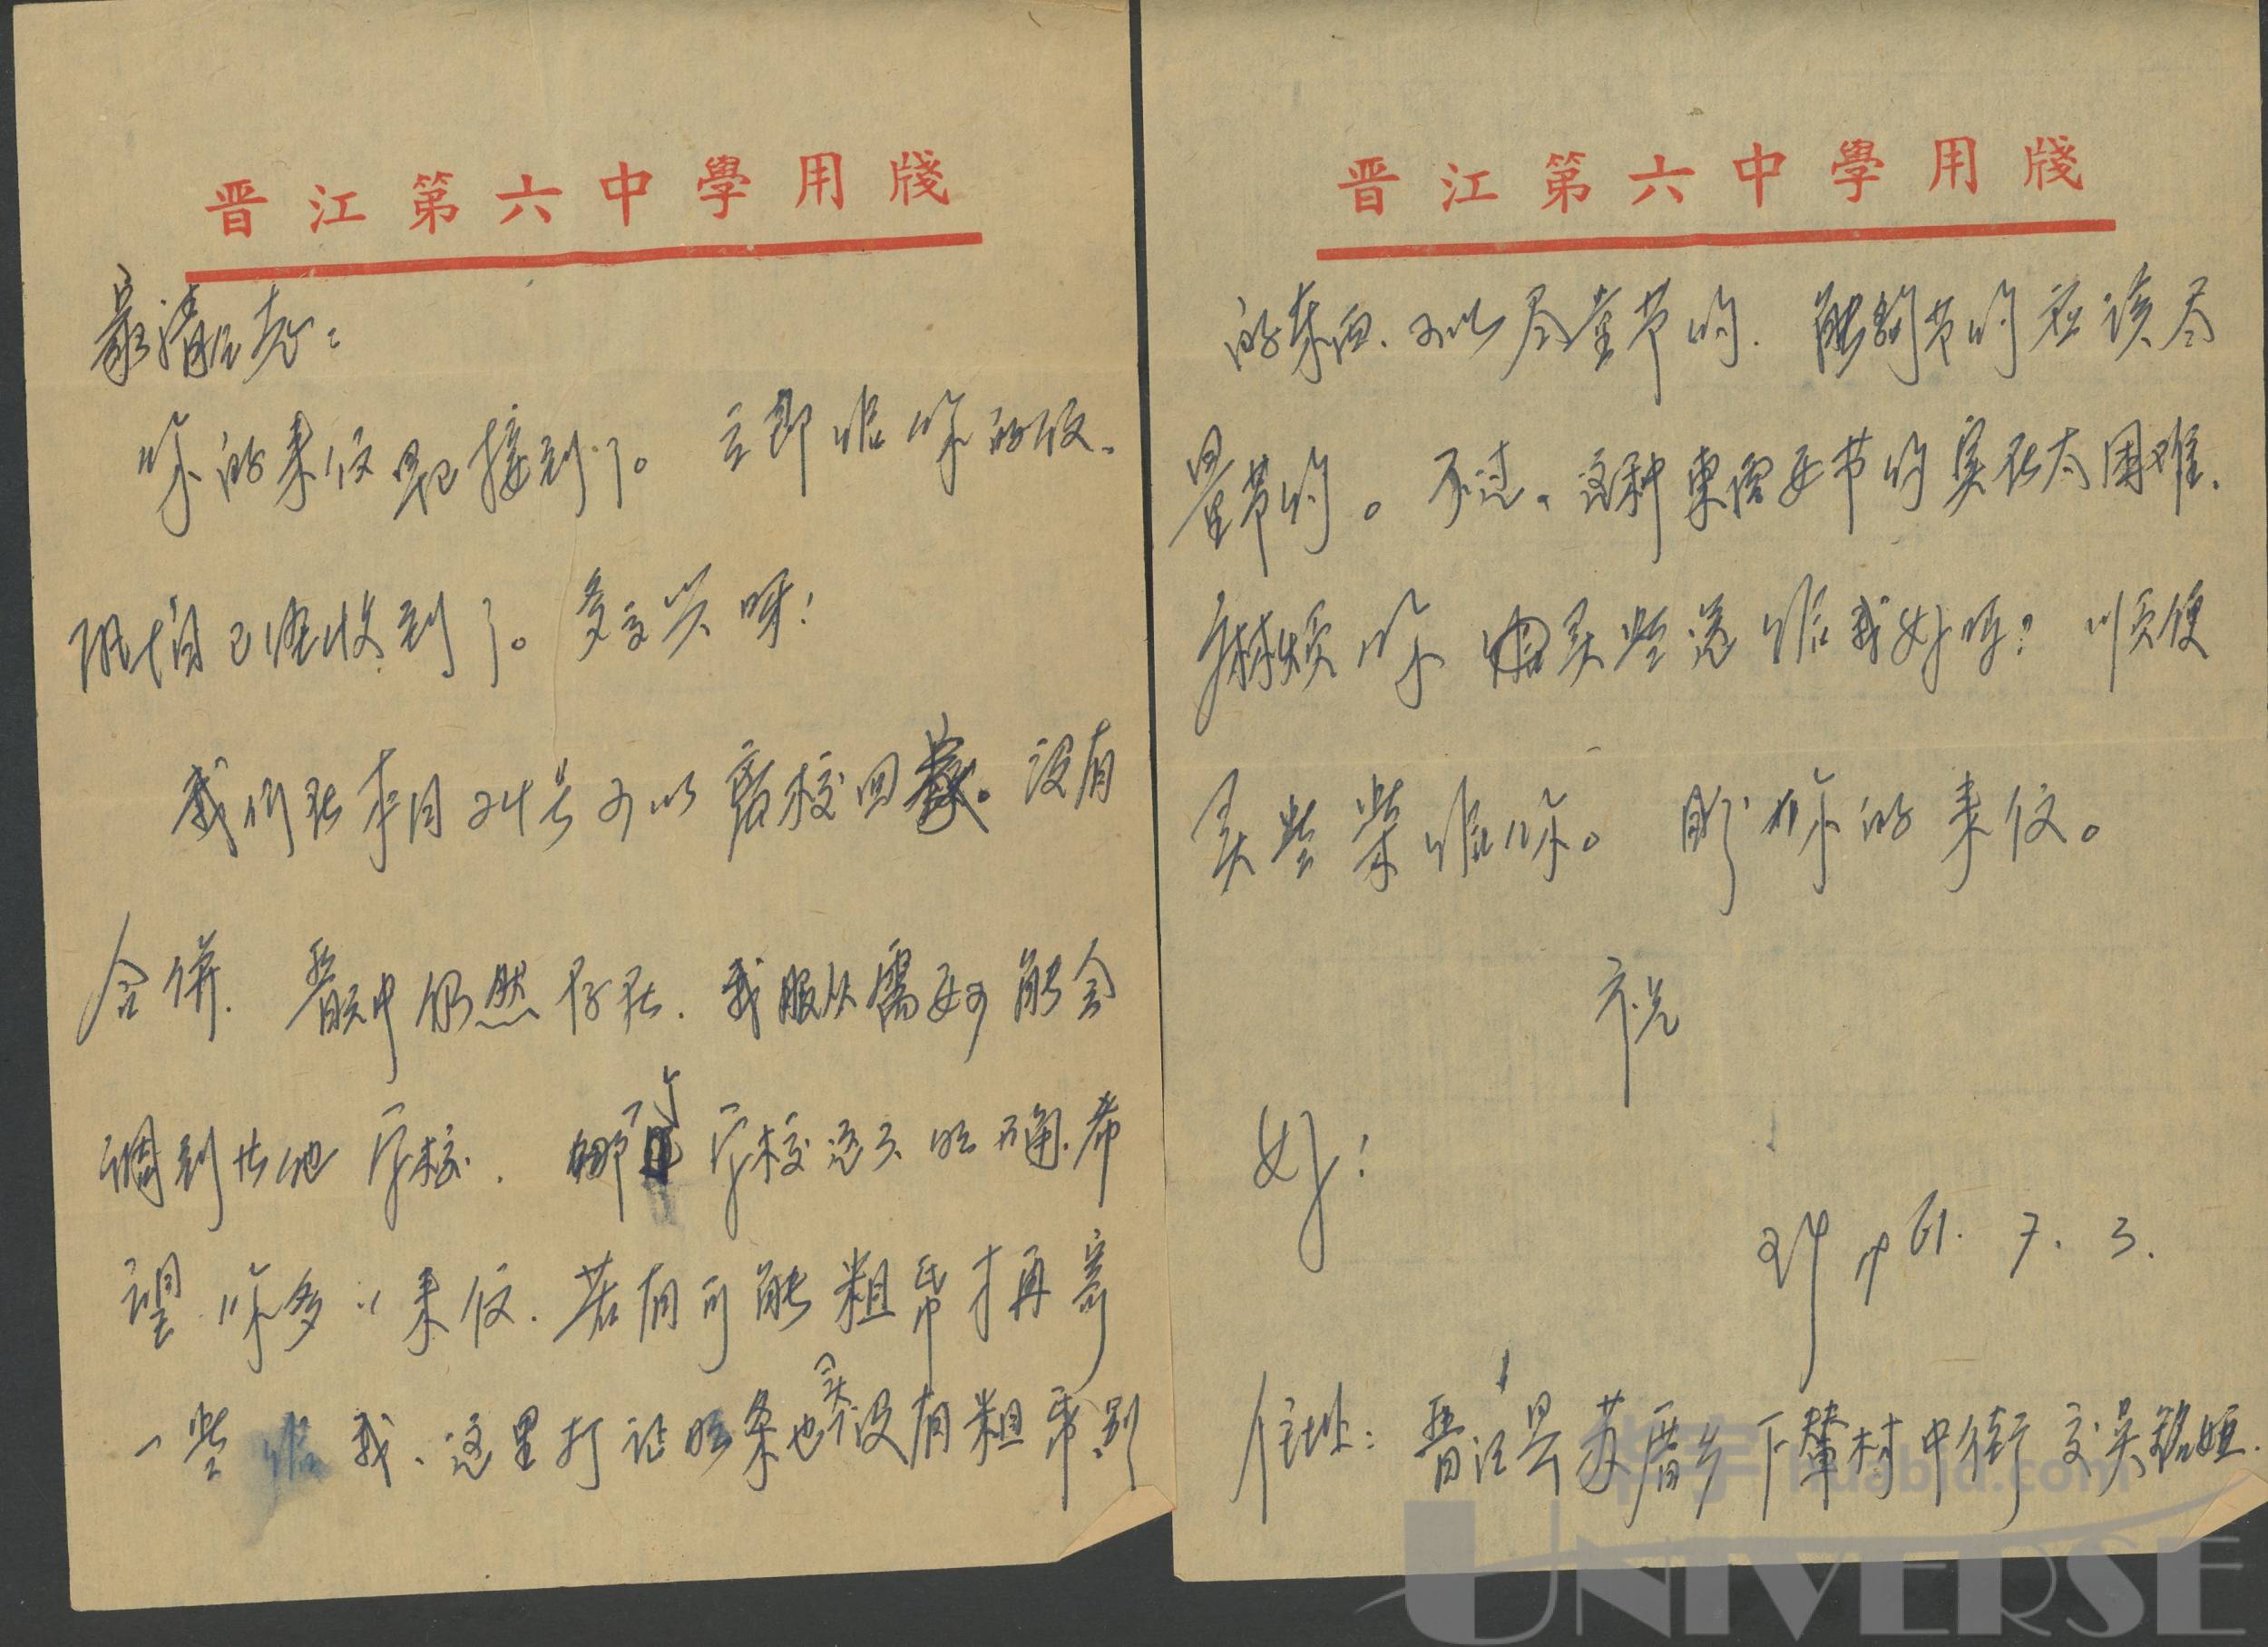 晋江第六中學用牋
你的来仅早已接到了。立即给你的仅、
现相已经收到了。多高兴呀！
我们在本月24号可以离校回家。没有
合併. 晋中仍然存在. 我服从需要可能会
调到其他学校. 哪所学校还不明确. 希
望你多〃来仅. 若有可能粗纸才再寄
一些给我、这里打证明条也买不没有粗纸. 别
晋江第六中學用牋
的东西. 可以尽量节约. 能够节约应该尽
量节约。不过、这种东西要节约实在太困难.
麻烦你买些送给我好吗？顺便
买些菜给你。盼你的来仅。
祝
好！
61. 7. 3.
住址：晋江县苏厝乡下輦村中街交吴铭
huabid.com
UNIVERSE